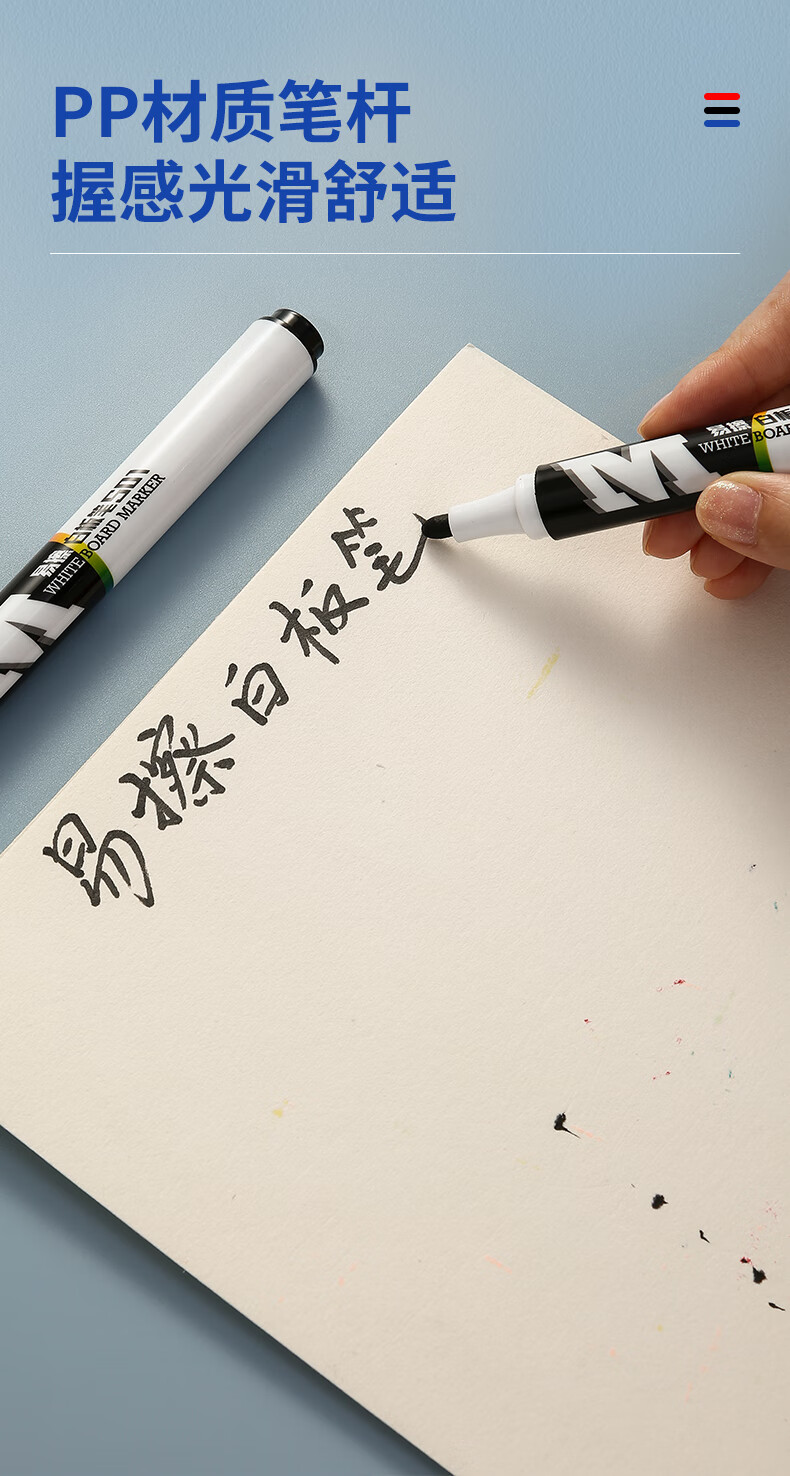 PP材质笔杆
握感光滑舒适
易擦 白板笔901
WHITE BOARD MARKER
M
易擦 白板
WHITE BOAR
M
易擦白板笔